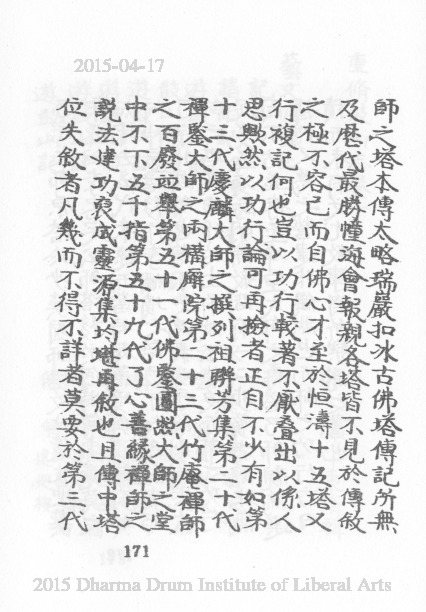 2015-04-17
師之塔本傳太略瑞嚴扣冰古佛塔傳記所無
及歷代最勝憧海會報親各塔皆不見於傳敘
之極不容已而自佛心才至於恒濤十五塔又
行複記何也豈以功行載著不厭疊出以係人
思歟然以功行論可再撿者正自不少有如第
十三代慶麟大師之撰列祖聯芳集第二十代
禪鑒大師之兩搆廨院第二十三代竹庵禪師
之百廢竝舉第五十一代佛鑒圓照大師之堂
中不下五千指第五十九代了心善緣禪師之
說法建功裒成靈源集均堪再敘也且傳中塔
位失敘者凡幾而不得不詳者莫要於第三代
171
2015 Dharma Drum Institute of Liberal Arts